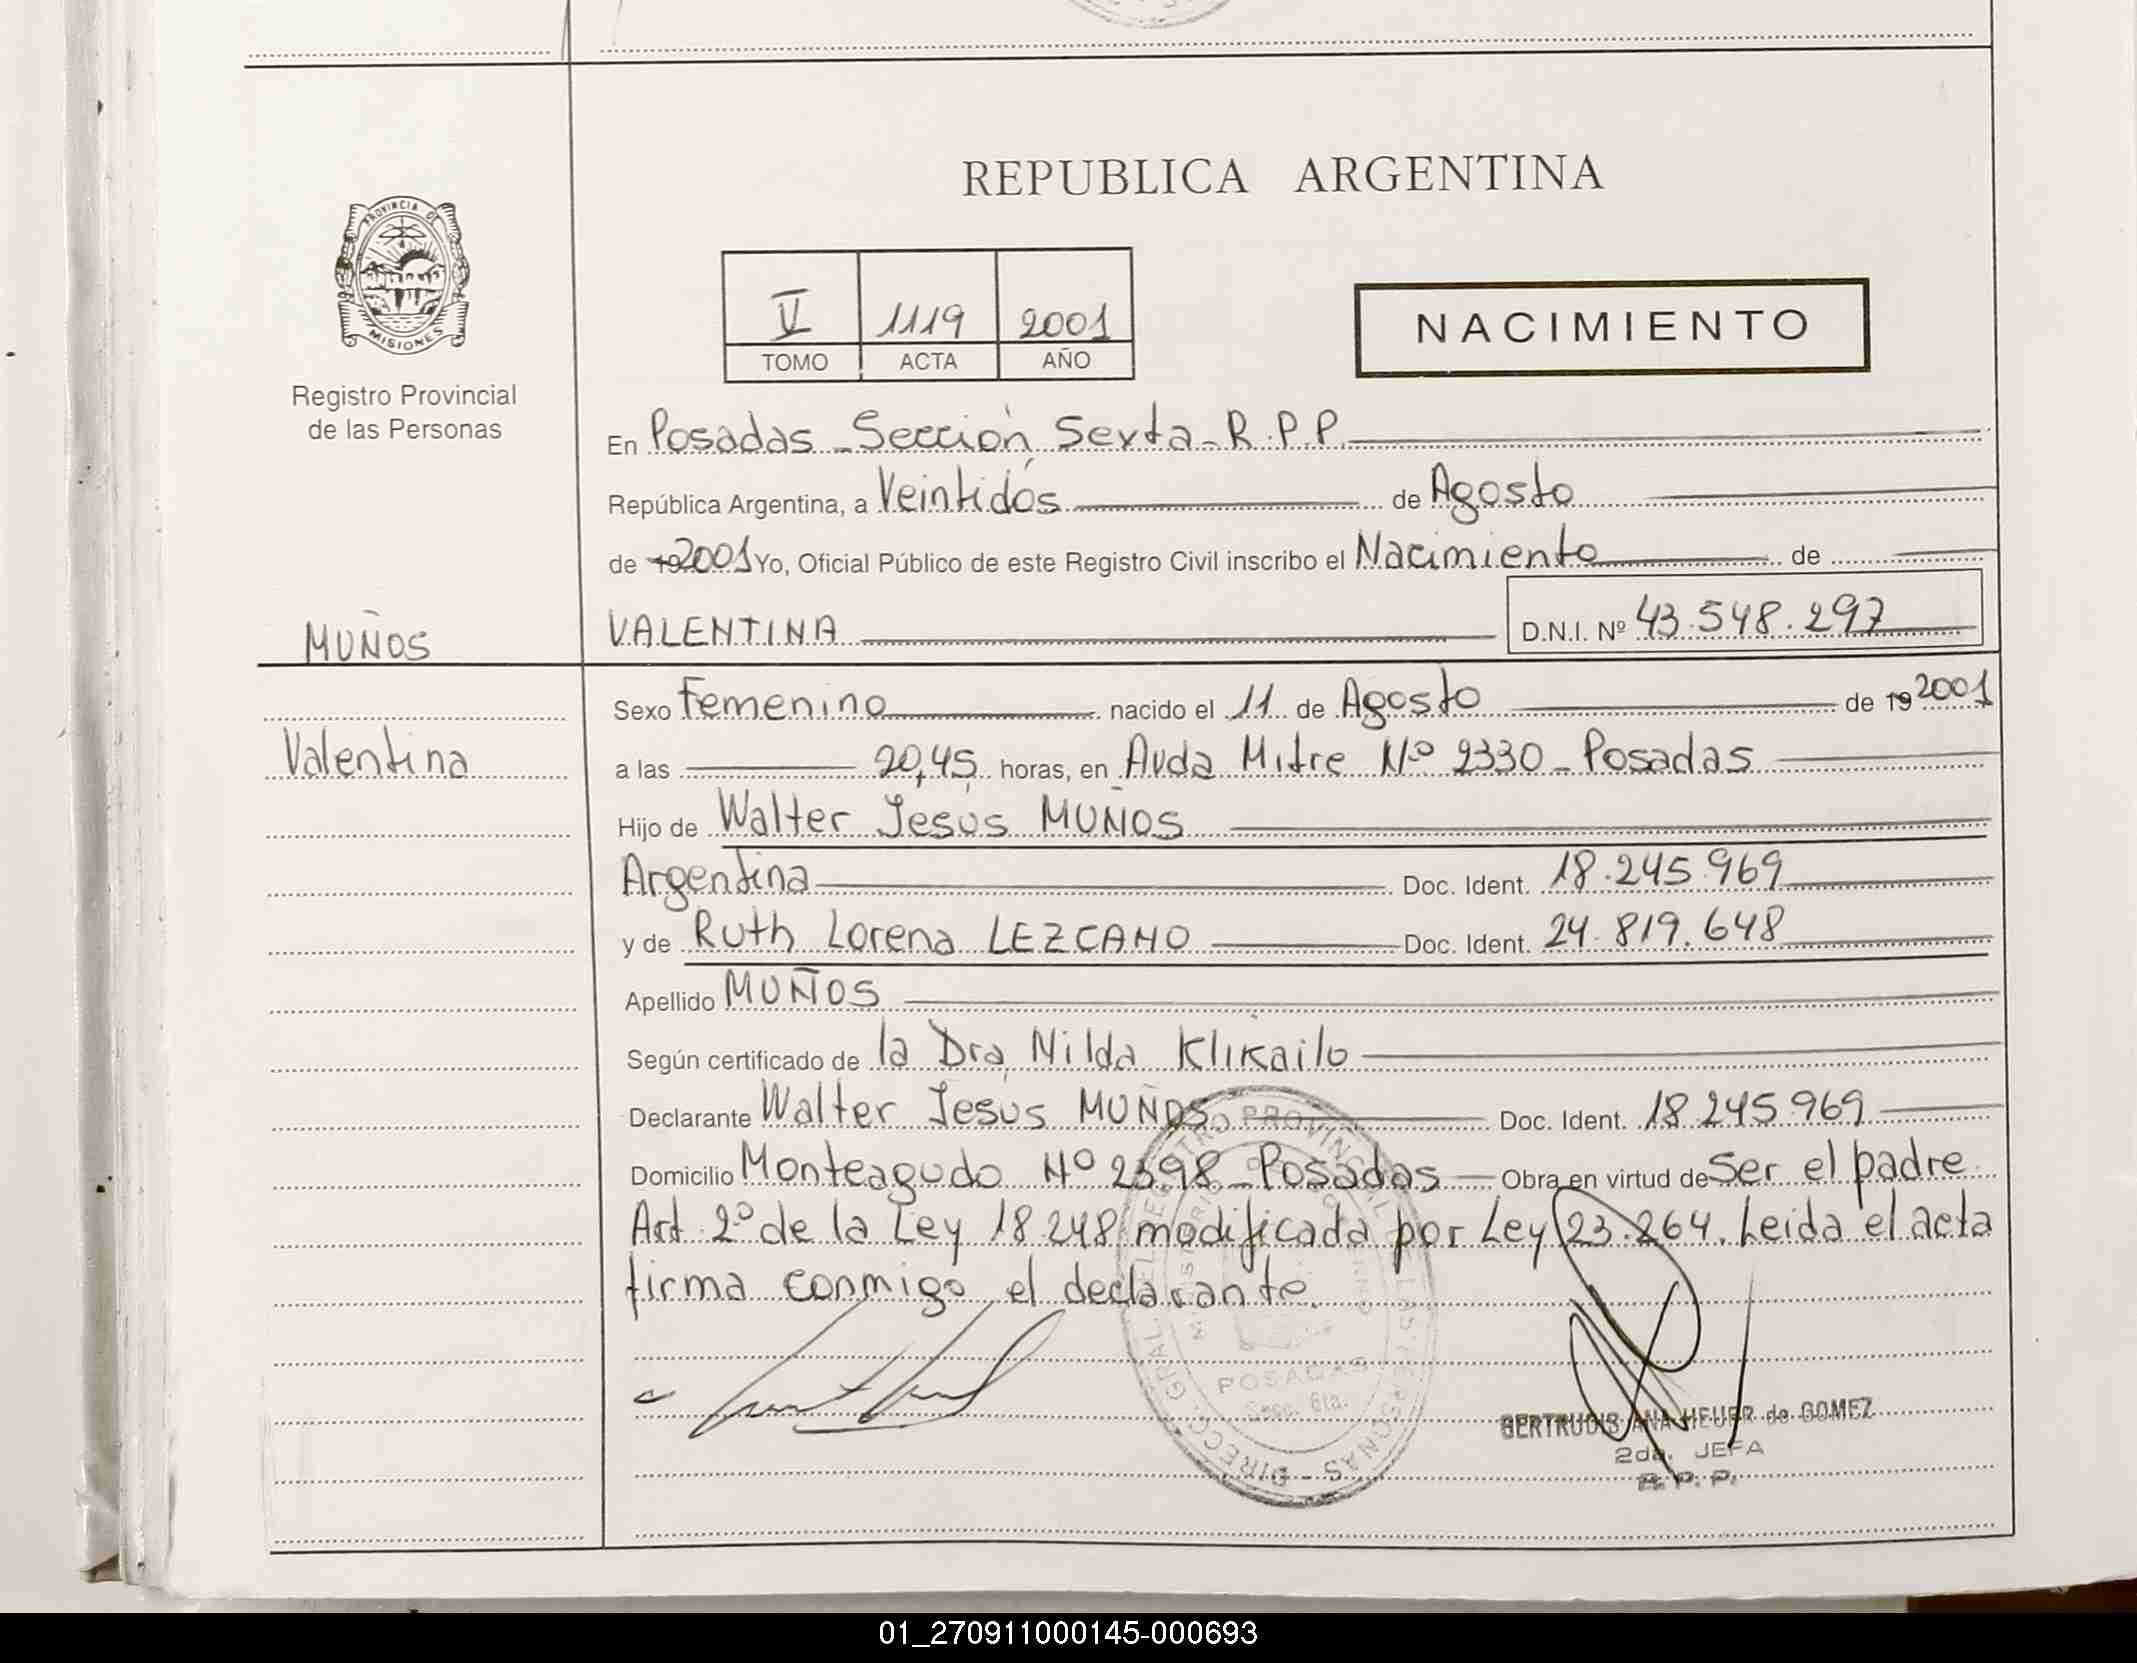 REPUBLICA ARGENTINA
PROVINCIA DE MISIONES
Registro Provincial
de las Personas
V 1119 2001
TOMO ACTA AÑO
NACIMIENTO
En Posadas - Sección Sexta - R.P.P.
República Argentina, a Veintidós de Agosto
de 19 2001 Yo, Oficial Público de este Registro Civil inscribo el Nacimiento de
MUÑOS
VALENTINA D.N.I. Nº 43.548.297
Sexo Femenino nacido el 11 de Agosto de 19 2001
Valentina
a las 20,45 horas, en Avda Mitre Nº 2330 - Posadas
Hijo de Walter Jesús MUÑOS
Argentina Doc. Ident. 18.245.969
y de Ruth Lorena LEZCANO Doc. Ident. 24.819.648
Apellido MUÑOS
Según certificado de la Dra Nilda Klikailo
Declarante Walter Jesus MUÑOS Doc. Ident. 18.245.969
Domicilio Monteagudo Nº 2398 - Posadas - Obra en virtud de Ser el padre
Art 2º de la Ley 18.248 modificada por Ley 23.264. Leida el acta
firma conmigo el declarante.
DIRECC. GRAL. DEL REGISTRO PROVINCIAL DE LAS PERSONAS
POSADAS
Secc. 6ta.
GERTRUDIS ANA HEUER de GOMEZ
2da. JEFA
R. P. P.
01_270911000145-000693